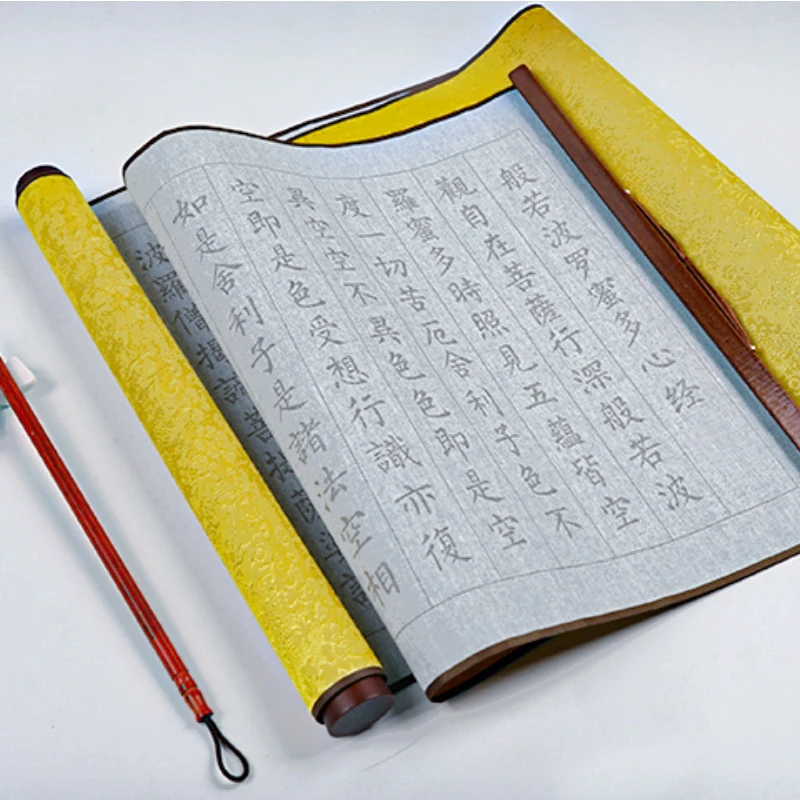 般若波罗蜜多心经
觀自在菩薩行深般若波
羅蜜多時照見五蘊皆空
度一切苦厄舍利子色不
異空空不異色色即是空
空即是色受想行識亦復
如是舍利子是諸法空相
波羅僧揭諦菩提薩